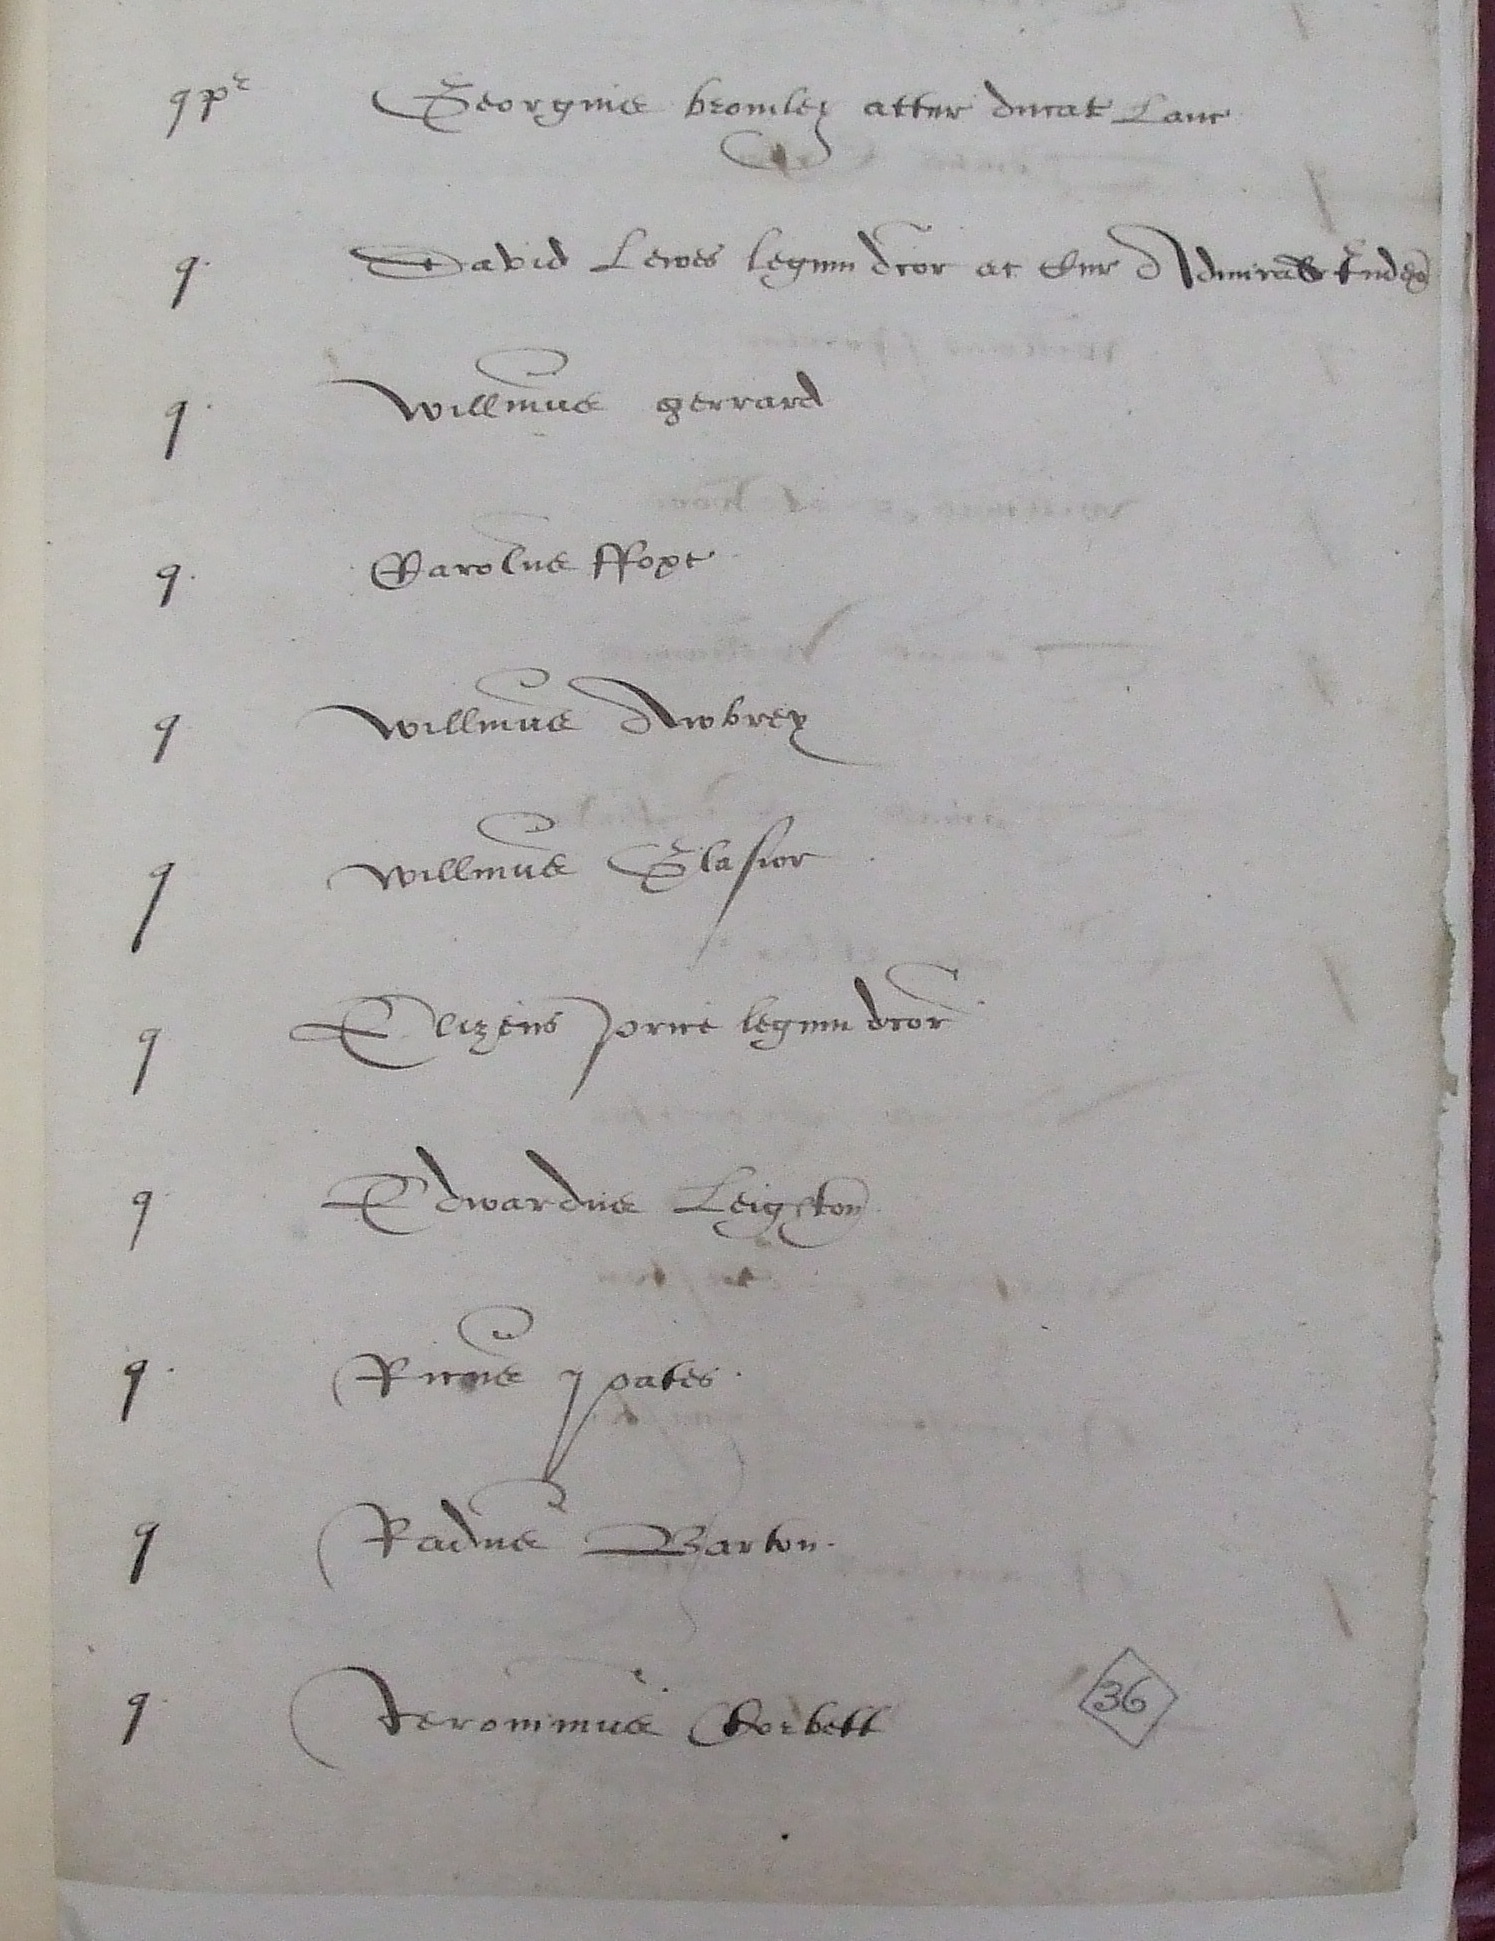 q pr Georgius bromley attur ducat Lanc
q. David Lewes legum dcor ac Cur Admirall Judex
q. Willmus gerrard
q. Carolus ffoxe
q Willmus Awbrey
q Willmus Glasior
q Elizeus price legum dcor
q Edwardus Leighton
q. Ricus pates
q Radus Barton
q Jeronimus Corbett
36